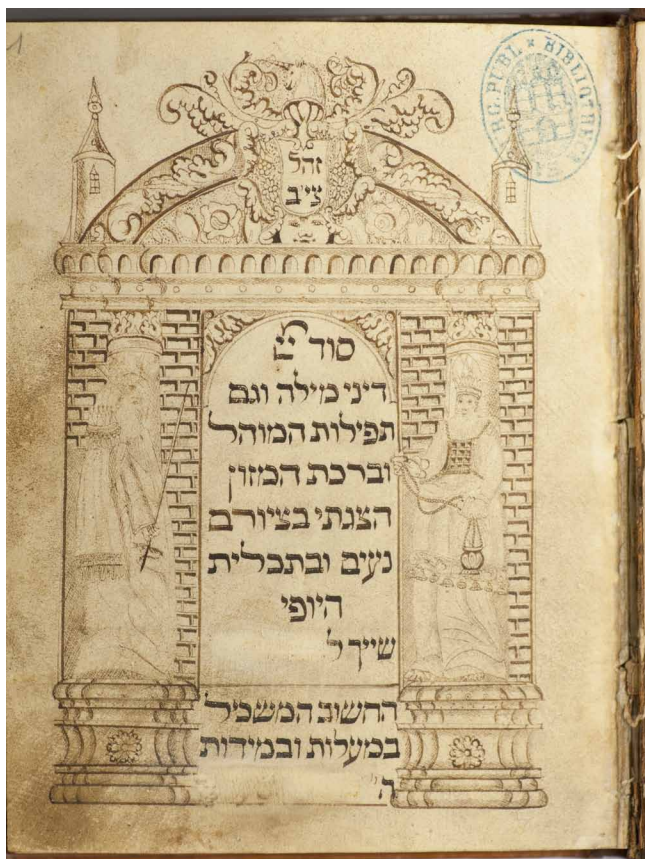 1
PUBL * BIBLIOTHEC
זהל
צי״ב
סוד
דיני מילה וגם
תפילות המוהל
וברכת המזון
הצגתי בציורם
נעים ובתכלית
היופי
שייך ל
החשוב המשכיל
במעלות ובמידות
ה׳